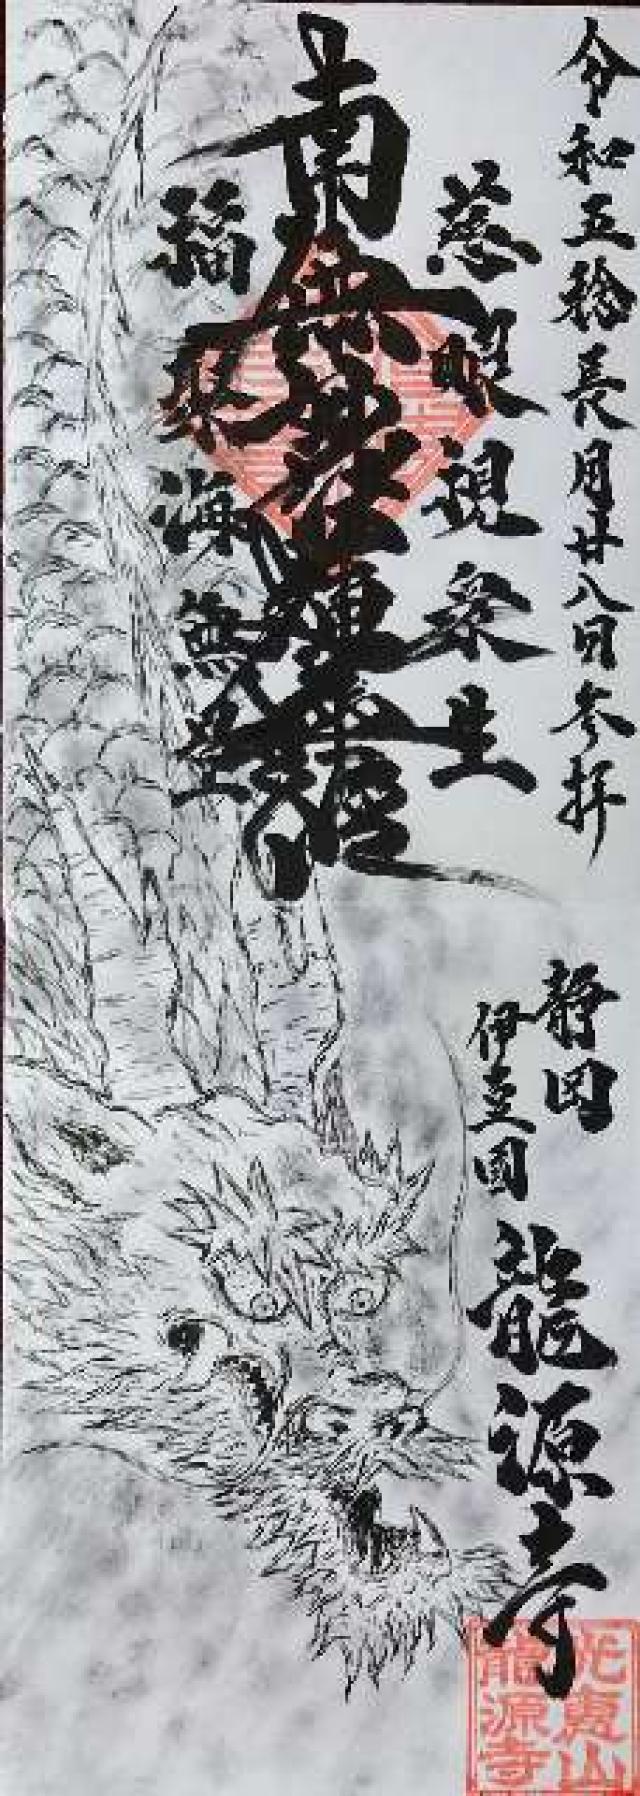 令和五稔長月廿八日参拝
慈眼視衆生
南無
福聚海無量
静岡
伊豆國
龍源寺
光恵山
龍源寺